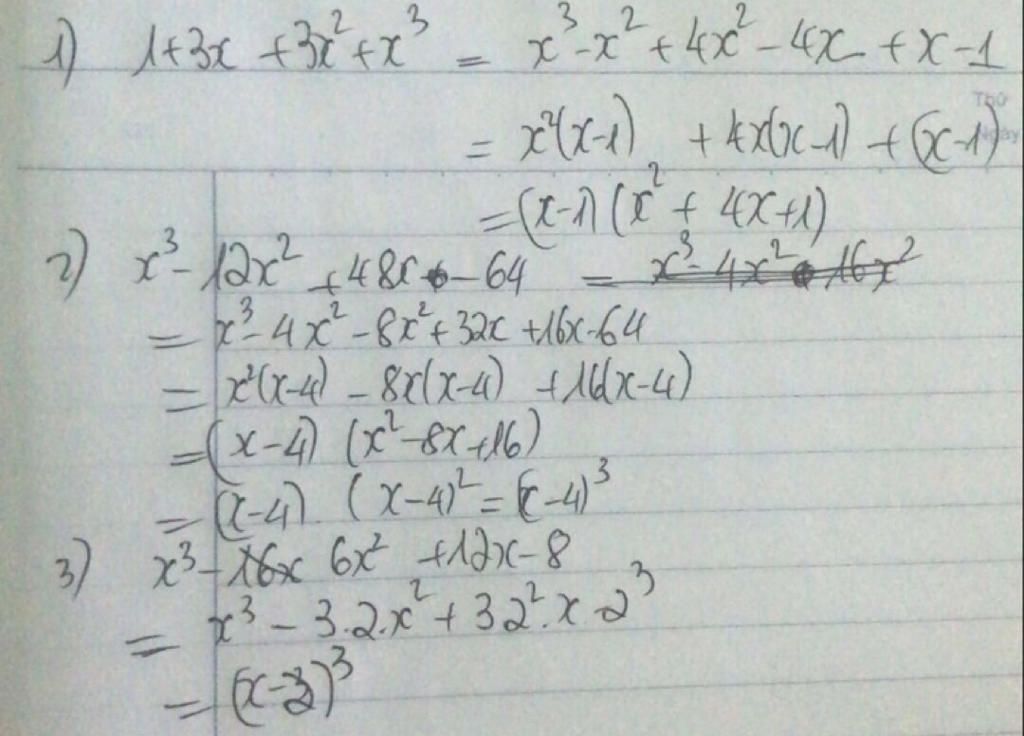 1) 1+3x +3x²+x³ = x³-x²+4x²-4x+x-1
Thứ
= x²(x-1) +4x(x-1)+(x-1)
Ngày
=(x-1)(x²+4x+1)
2) x³-12x²+48x-64 = x³-4x² 16x²
= x³-4x²-8x²+32x+16x-64
= x²(x-4) -8x(x-4) +16(x-4)
=(x-4) (x²-8x+16)
= (x-4). (x-4)²=(x-4)³
3) x³-16x 6x² +12x-8
= x³ - 3.2.x²+32².x-2³
= (x-2)³